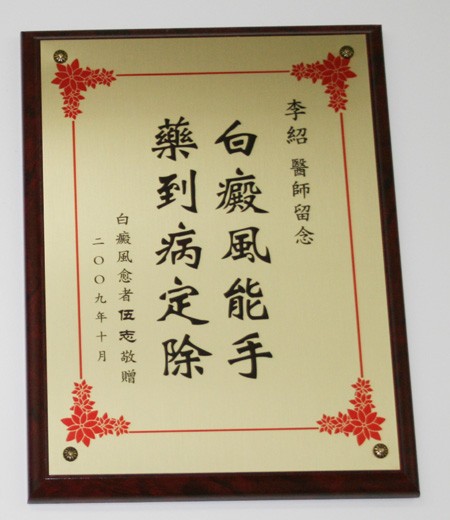 李紹 醫師留念
白癜風能手
藥到病定除
白癜風愈者伍志敬贈
二〇〇九年十月